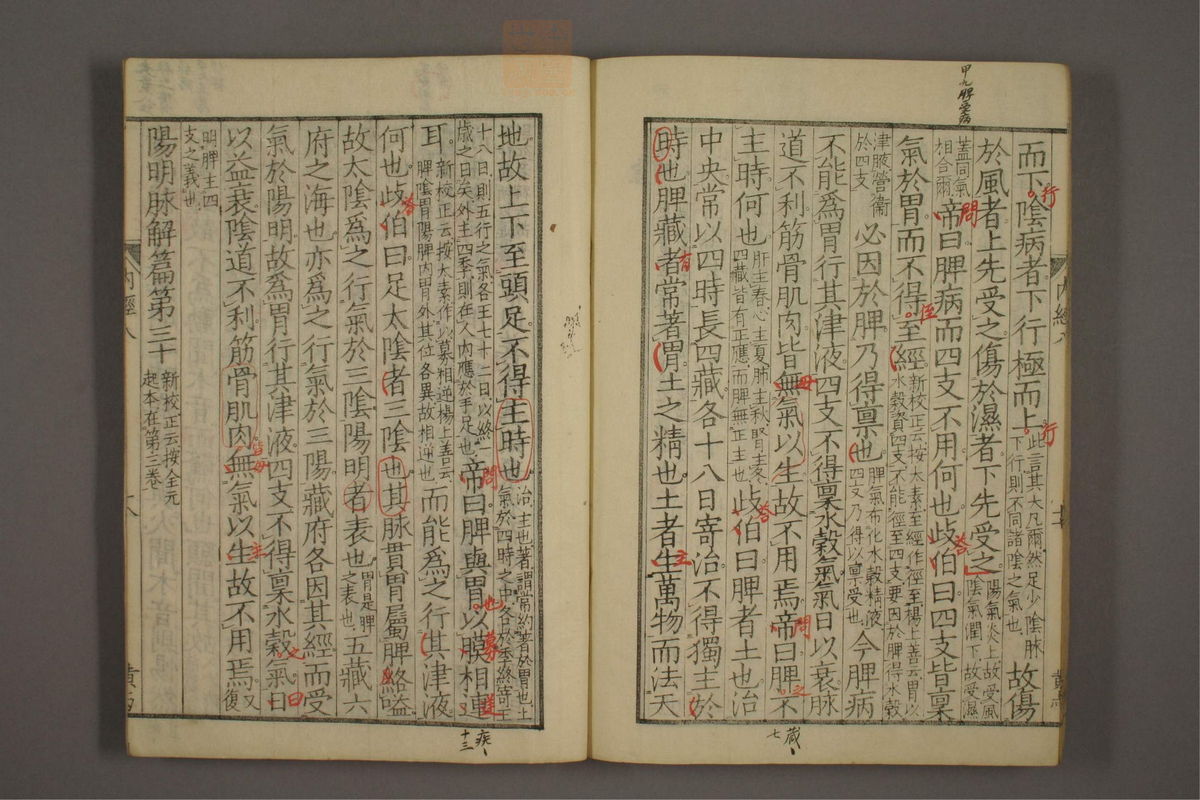 甲九脾受病
而下。陰病者下行極而上。此言其大凡爾然足少陰脉下行則不同諸陰之氣也故傷
於風者上先受之傷於濕者下先受之陽氣炎上故受風陰氣潤下故受濕
蓋同氣相合爾帝曰脾病而四支不用何也歧伯曰四支皆稟
氣於胃而不得至經新校正云按太素至經作徑至楊上善云胃以水穀資四支不能徑至四支要因於脾得水穀
津液營衛於四支必因於脾乃得稟也脾氣布化水穀精液四支乃得以稟受也今脾病
不能爲胃行其津液四支不得稟水穀氣氣日以衰脉
道不利筋骨肌肉皆無氣以生故不用焉帝曰脾不
主時何也肝主春心主夏肺主秋腎主冬四藏皆有正應而脾無正主也歧伯曰脾者土也治
中央常以四時長四藏各十八日寄治不得獨主於
時也脾藏者常著胃土之精也土者生萬物而法天
藏
七
地故上下至頭足不得主時也治主也著謂常約著於胃也土氣於四時之中各於季終寄王
十八日則五行之氣各王七十二日以終歲之日矣外主四季則在人內應於手足也帝曰脾與胃以膜相連
耳新校正云按太素作以募相逆楊上善云脾陰胃陽脾內胃外其位各異故相逆也而能爲之行其津液
何也歧伯曰足太陰者三陰也其脉貫胃屬脾絡嗌
故太陰爲之行氣於三陰陽明者表也胃是脾之表也五藏六
府之海也亦爲之行氣於三陽藏府各因其經而受
氣於陽明故爲胃行其津液四支不得稟水穀氣日
以益衰陰道不利筋骨肌肉無氣以生故不用焉又復
明脾主四支之義也
陽明脉解篇第三十新校正云按全元起本在第三卷
內經八
疾
十三